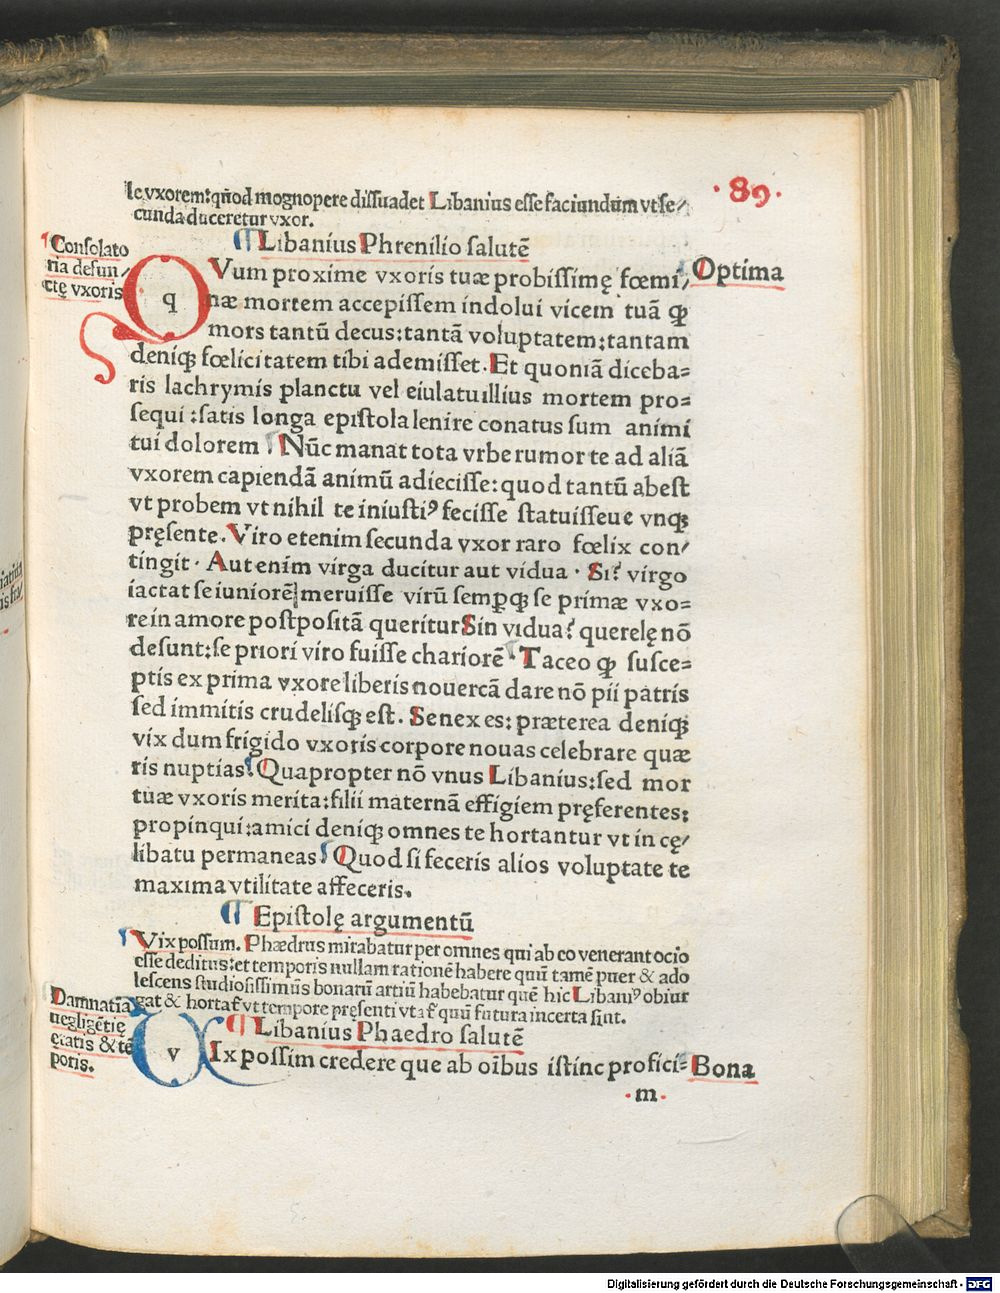 ·89·
le vxorem: qñod mognopere dissuadet Libanius esse faciundum vt se/
cunda duceretur vxor.
¶ Libanius Phrenilio salutē
Consolato
ria defun/
ctę vxoris
Optima
q
QVum proxime vxoris tuæ probissimę fœmi/
næ mortem accepissem indolui vicem tuā ꝙ
mors tantū decus: tantā voluptatem: tantam
deniqꝫ fœlicitatem tibi ademisset. Et quoniā diceba=
ris lachrymis planctu vel eiulatu illius mortem pro=
sequi: satis longa epistola lenire conatus sum animi
tui dolorem ¶ Nūc manat tota vrbe rumor te ad aliā
vxorem capiendā animū adiecisse: quod tantū abest
vt probem vt nihil te iniustiꝰ fecisse statuisseue vnqꝫ
pręsente. Viro etenim secunda vxor raro fœlix con/
tingit. Aut enim virga ducitur aut vidua. Si? virgo
iactat se iuniorē meruisse virū semp̱qꝫ se primæ vxo=
re in amore postpositā queritur Sin vidua? querelę nō
desunt: se priori viro fuisse chariorē ¶ Taceo ꝙ susce=
ptis ex prima vxore liberis nouercā dare nō pii patris
sed immitis crudelisqꝫ est. Senex es: præterea deniqꝫ
vix dum frigido vxoris corpore nouas celebrare quæ
ris nuptias ¶ Quapropter nō vnus Libanius: sed mor
tuæ vxoris merita: filii maternā effigiem pręferentes:
propinqui: amici deniqꝫ omnes te hortantur vt in cę/
libatu permaneas ¶ Quod si feceris alios voluptate te
maxima vtilitate affeceris.
¶ Epistolę argumentū
¶ Vix possum. Phædrus mirabatur per omnes qui ab eo venerant ocio
esse deditus: et temporis nullam rationē habere quū tamē puer & ado
lescens studiosissimus bonarū artiū habebatur quē hic Libaniꝰ obiur
gat & hortat̄ vt tempore pręsenti vtat̄ quū futura incerta sint.
Damnatiā
negligētię
ętatis & tē
poris.
¶ Libanius Phaedro salutē
v
VIx possim credere que ab oībus istinc profici=
Bona
·m·
Digitalisierung gefördert durch die Deutsche Forschungsgemeinschaft - DFG